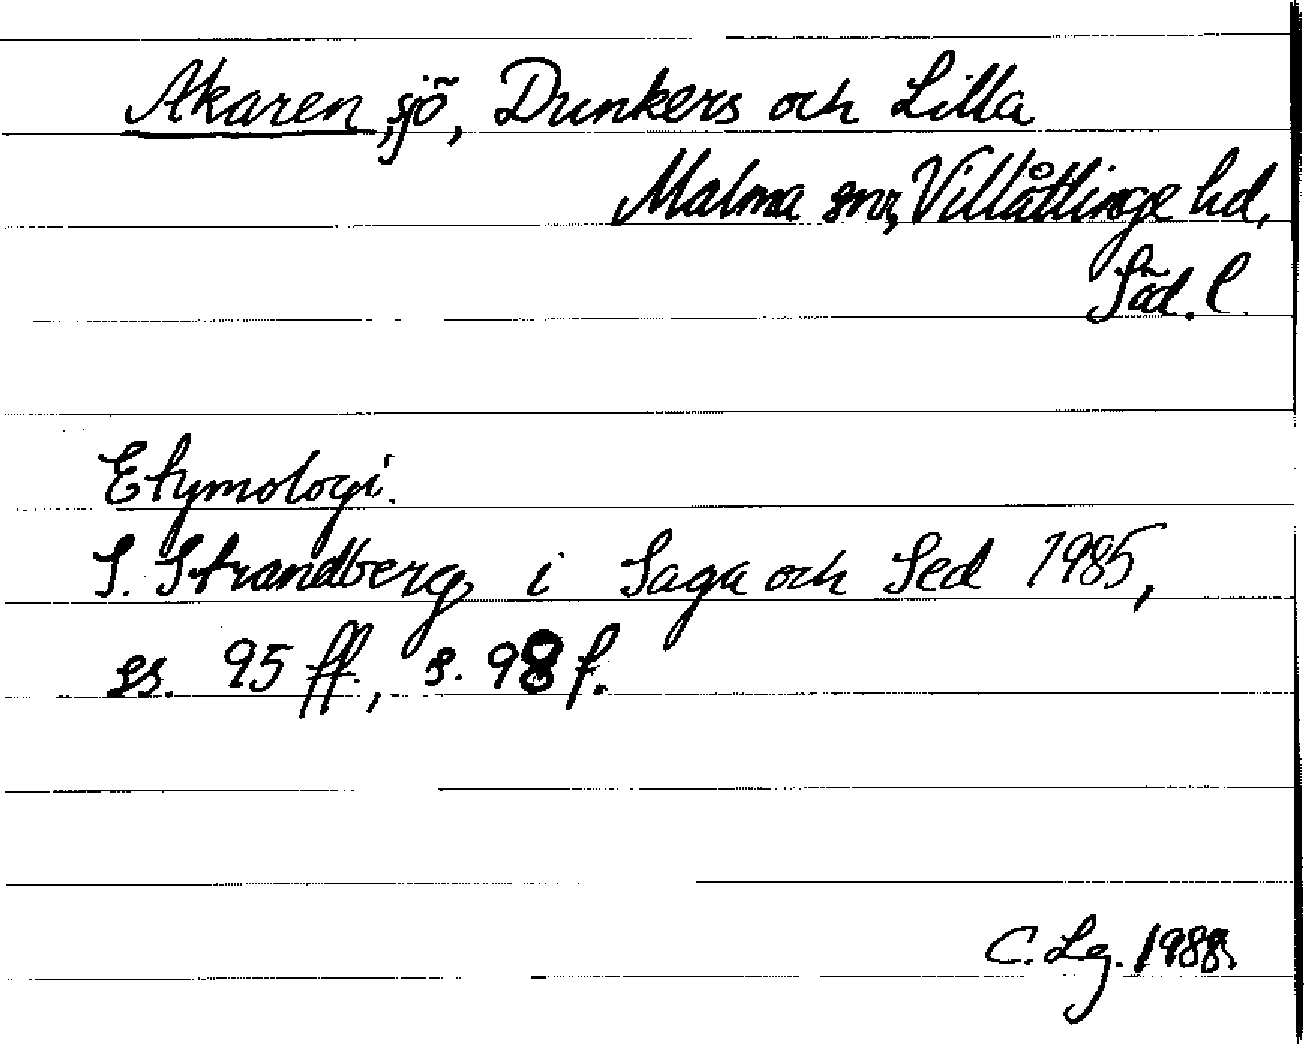 Akaren, sjö, Dunkers och Lilla
Malma snr, Villåttinge hd,
Söd. l.
Etymologi.
S. Strandberg i Saga och Sed 1985,
ss. 95 ff., s. 98 f.
C. Lg. 1988